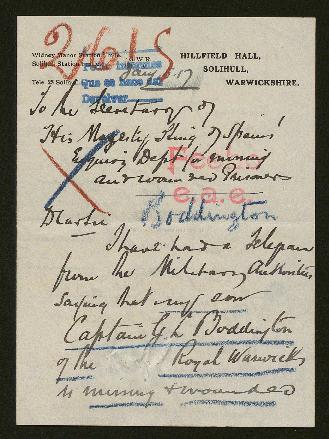 26615
Widney Manor Station
Solihull Station G.W.R.
HILLFIELD HALL,
SOLIHULL,
Tel. 23 Solihull.
WARWICKSHIRE.
Jany 17
Que se hace del
To the Secretary of
His Majesty King of Spains'
Enquiry Dept for missing
and wounded Prisoners
e.a.e.
Boddington
Dear Sir
I have had a Telegram
from the Military Authorities
saying that my son
Captain G L Boddington
of the Royal Warwicks
is missing & wounded